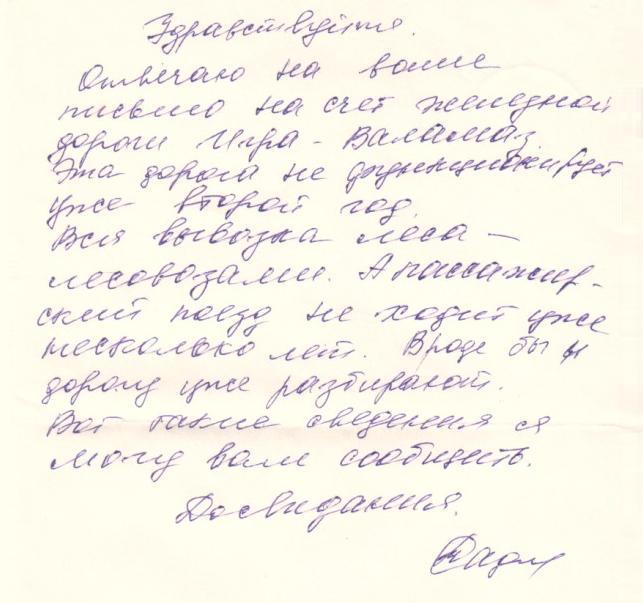 Здравствуйте.
Отвечаю на ваше
письмо на счет железной
дороги Игра - Валамаз.
Эта дорога не функционирует
уже второй год.
Вся вывозка леса —
лесовозами. А пассажир-
ский поезд не ходит уже
несколько лет. Вроде бы и
дорогу уже разбирают.
Вот такие сведения я
могу вам сообщить.
Досвидания.